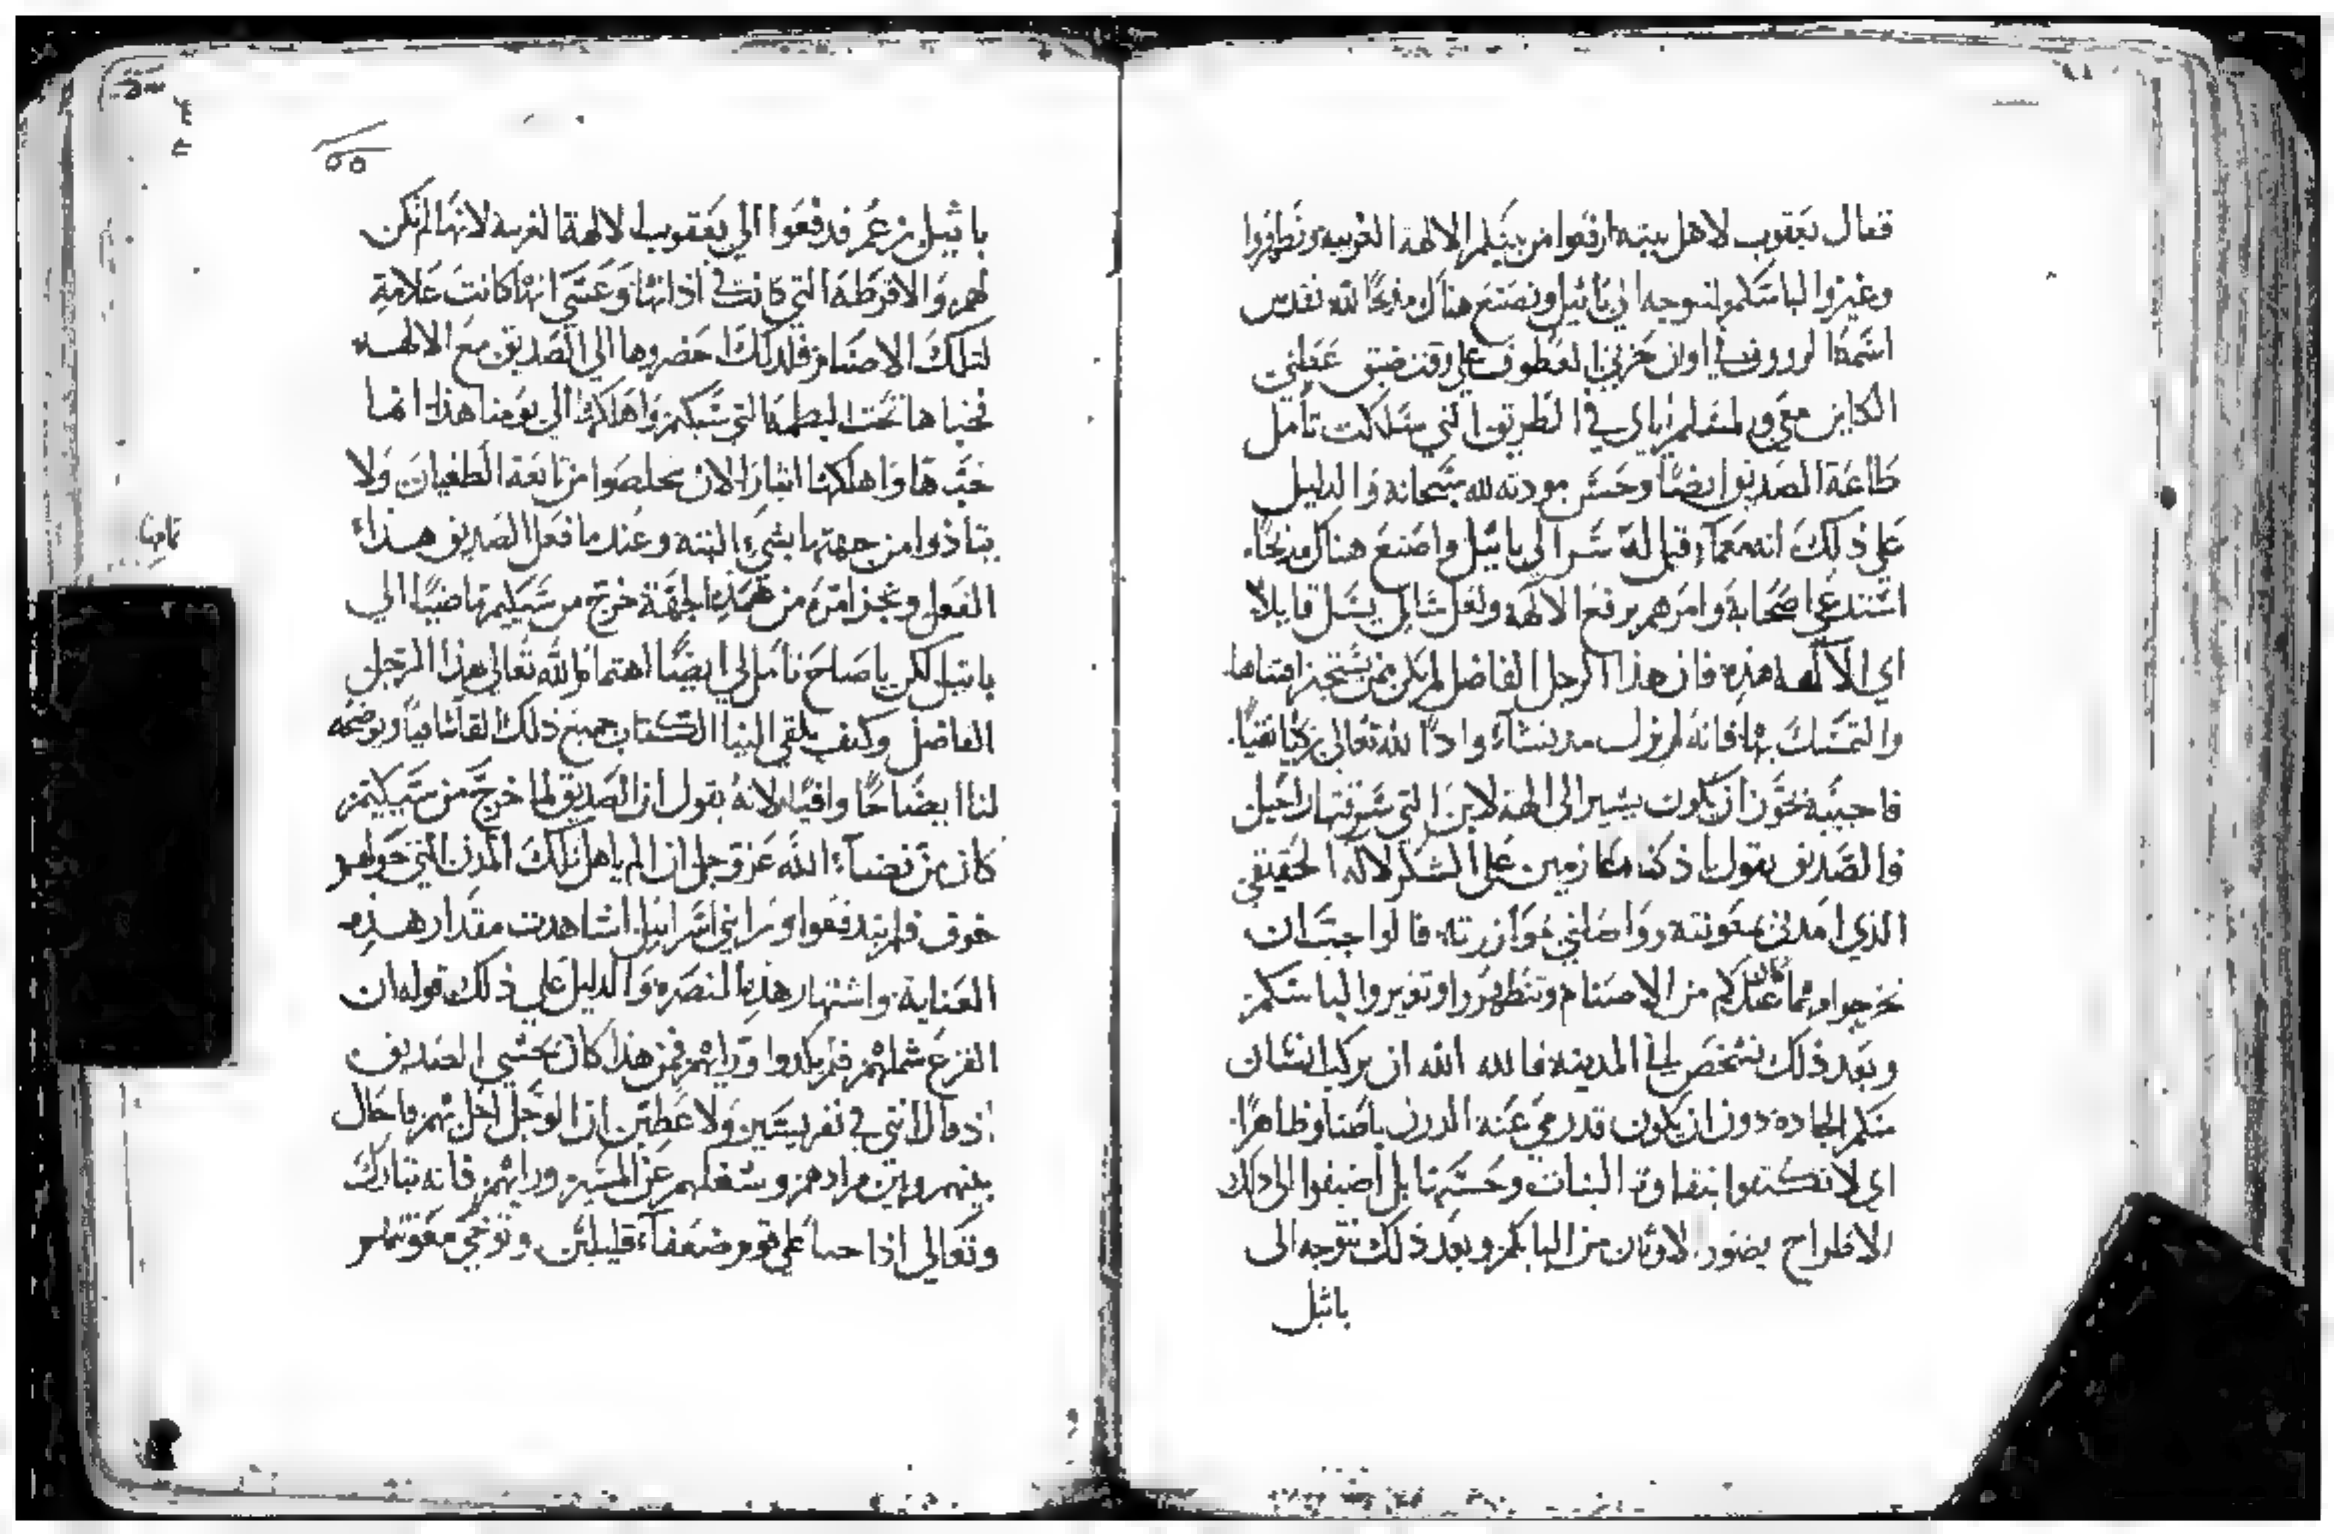 فقال يعقوب لاهل بيته ارفعوا من بينكم الالهة الغريبه وتطهروا
وغيروا لباسكم لنتوجه الي باثيل ونصنع هناك مذبحًا لله نقدس
اسمه الرووف في اوان حزني العطوف علي وقت ضيق عقلي
الكاين معي والمسلم اياي في الطريق التي سلكت تامل
طاعة الصديق ايضًا وحسن مودته لله سبحانه والدليل
علي ذلك انه معما قيل له سر الي باثيل واصنع هناك مذبحًا
استدعي اصحابه وامرهم برفع الالهة ولعل سايل يسل قايلا
اي الالهه هذه فان هذا الرجل الفاضل لم يكن ممن يستجيز اقتناها
والتمسك بها فانه لم يزل منذ نشاء وادًا لله تعالي زكيًا تقيًا
فاجيبه نحو ان يكون يشير الي الهة لابن التي سرقتها راحيل
فالصديق يقول اذ كنا معازمين علي الشكر لاله الحقيقي
الذي امدني بمعونته وواصلني موازرته قالوا جب ان
نخرجوا مما كان عندكم من الاصنام وتتطهروا وتغيروا لباسكم
وبعد ذلك نشخص الي المدينه فالله الله ان يركب انسان
منكم الجاده دون ان يكون قد رمي عنه الدرن باطنًا وظاهرًا
اي لا تكتفوا بنقاوة الثياب وحسنها بل اضيفوا الي ذلك
الاطراح بصور الاوثان من البابكم وبعد ذلك نتوجه الي
باثيل
باثيل زعم فدفعوا الي يعقوب الالهة الغريبة لانها لم تكن
لهم والاقرطة التي كانت في اذانها وعسي انها كانت علامة
لتلك الاصنام فلذلك احضروها الي الصديق مع الالهه
فخباها تحت البطمه التي سبكيم واهلكها الي يومنا هذا انما
خباها واهلكها ايثارًا لان يخلصوا من تابعة الطغيان ولا
يتاذوا من جهتها بشيء البته وعندما فعل الصديق هذا
الفعل ونجز امره من هذه الجهة خرج من سبكيم ماضيًا الي
باتيل لكن يا صاح تامل لي ايضًا اهتمام الله تعالي بهذا الرجل
الفاضل وكيف يلقي الينا الكتاب جميع ذلك القاشافيًا ويوضحه
لنا ايضاحًا وافيًا لانه يقول ان الصديق لما خرج من سبيكيم
كان من قضاء الله عز وجل ان الم باهل تلك المدن التي حولهم
خوف فلم يندفعوا ورا بني اسراييل اشاهدت مقدار هذه
العناية واشتهار هذه النصره والدليل علي ذلك قوله ان
الفزع شملهم فلم يكدوا ورايهم فمن هذا كان يخشي الصديق
اذ قال انني في نفر يسير ولا عطين ان الوجل اخل بهم فاحال
بينهم وبين مرادهم وشغلهم عن المسير ورايهم فانه تبارك
وتعالي اذا حبا علي قوم ضعفاء قليلين وتوخي معونتهم